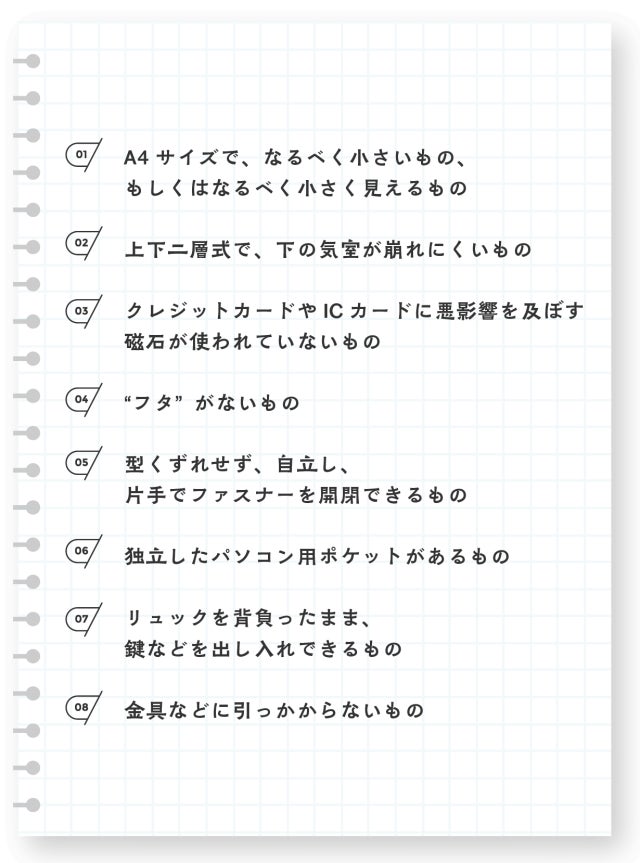 01
A4 サイズで、なるべく小さいもの、
もしくはなるべく小さく見えるもの
02
上下二層式で、下の気室が崩れにくいもの
03
クレジットカードや IC カードに悪影響を及ぼす
磁石が使われていないもの
04
“フタ” がないもの
05
型くずれせず、自立し、
片手でファスナーを開閉できるもの
06
独立したパソコン用ポケットがあるもの
07
リュックを背負ったまま、
鍵などを出し入れできるもの
08
金具などに引っかからないもの